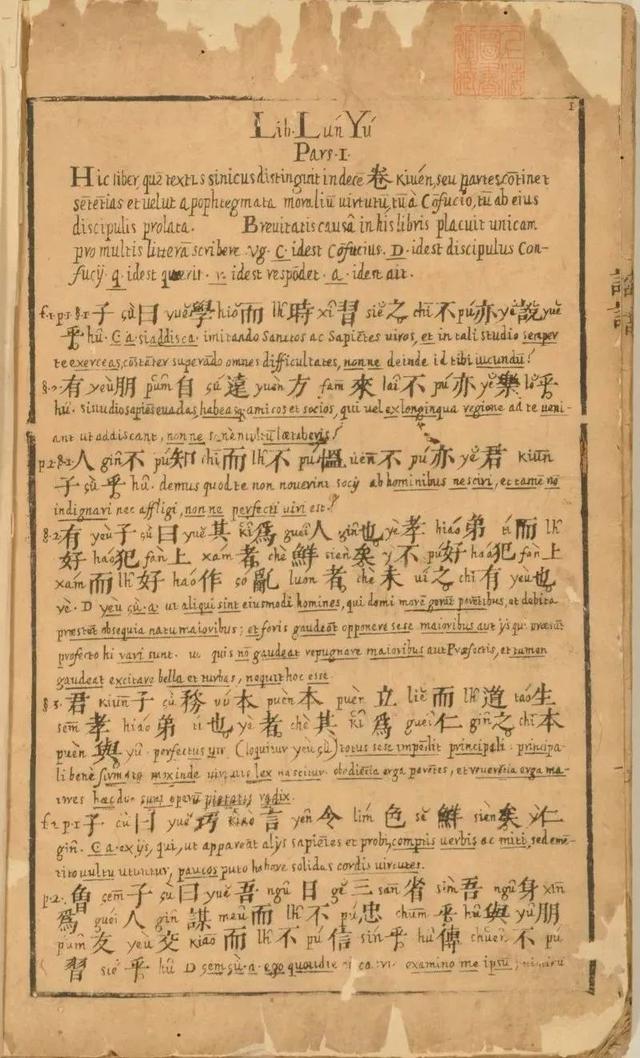 1
Lib. Lun Yu
Pars. I.
Hic liber, quē textus sinicus distinguit in decē 卷 kiuén, seu partes, cōtinet
sētētias et velut apophtegmata moraliū virtutū, tū à Cōfucio, tū ab eius
discipulis prolata. Brevitatis causâ in his libris placuit unicam
pro multis litterā scribere Vg. C. idest Cōfucius. D. idest discipulus Con-
fucij. q. idest querit. r. idest respōdet. a. idest ait.
f.1. p.1. §.1. 子 çù 曰 yuě 學 hiǒ 而 lh 時 xî 習 siě 之 chī 不 pú 亦 yě 說 yuě
乎 hû. C. a. si addisca. imitando Sanctos ac Sapiētes viros, et in tali studio semper
te exerceas, cōstāter superādo omnes difficultates, nonne deinde id tibi iucundū?
§.2. 有 yeù 朋 pûm 自 çú 遠 yuèn 方 fam 來 laî 不 pú 亦 yě 樂 lǒ 乎
hû. si studio sapiēs evadas, habeasq. amicos et socios, qui vel ex longinqua regione ad te veni-
ant ut addiscant, nonne laetaberis?
p.2. §.1. 人 gîn 不 pú 知 chī 而 lh 不 pú 慍 uén 不 pú 亦 yě 君 kiūn
子 çù 乎 hû. demus quod te non noverint socij ab hominibus nesciri, et tamē nō
indignari nec affligi, nonne perfecti viri est?
§.2. 有 yeù 子 çù 曰 yuě 其 kî 爲 guêi 人 gîn 也 yè 孝 hiáo 弟 tí 而 lh
好 háo 犯 fán 上 xám 者 chè 鮮 sièn 矣 y 不 pú 好 háo 犯 fán 上
xám 而 lh 好 háo 作 çó 亂 luón 者 chè 未 ví 之 chī 有 yeù 也
yè. D yeù çù. a. ut aliqui sint eiusmodi homines, qui domi morē gerāt parētibus, et debita
præstēt obsequia natu maioribus; et foris gaudeāt opponere sese maioribus aut ijs qui præsūt
profecto hi rari sunt. ut quis nō gaudeat repugnare maioribus aut Præfectis, et tamen
gaudeat excitare bella et turbas, nequit hoc esse.
§.3. 君 kiūn 子 çù 務 vú 本 puèn 本 puèn 立 liě 而 lh 道 táo 生
sēm 孝 hiáo 弟 tí 也 yè 者 chè 其 kî 爲 guêi 仁 gîn 之 chī 本
puèn 與 yû. perfectus vir (loquitur yeù çù) totus sese impēdit principali. principa-
li benè firmato mox inde virtutis lex nascitur. obediētia erga parētes, et reverētia erga ma-
iores hæc duo sunt operū pietatis radix.
f.2. p.1. 子 çù 曰 yuě 巧 kiào 言 yên 令 lim 色 sě 鮮 sièn 矣 仁
gîn. C. a. ex ijs, qui, ut appareāt alijs sapiētes et probi, comptis verbis ac miti, sed emē-
tito vultu utuntur, paucos puto habere solidas cordis virtutes.
p.2. 曾 çēm 子 çù 曰 yuě 吾 ngû 日 gě 三 san 省 sìm 吾 ngû 身 xin
爲 guéi 人 gîn 謀 meû 而 lh 不 pú 忠 chum 乎 hû 與 yù 朋
pûm 友 yeù 交 kiāo 而 lh 不 pú 信 sín 乎 hû 傳 chuên 不 pú
習 siě 乎 hû D çem çù. a. ego quotidie examino me ipsū